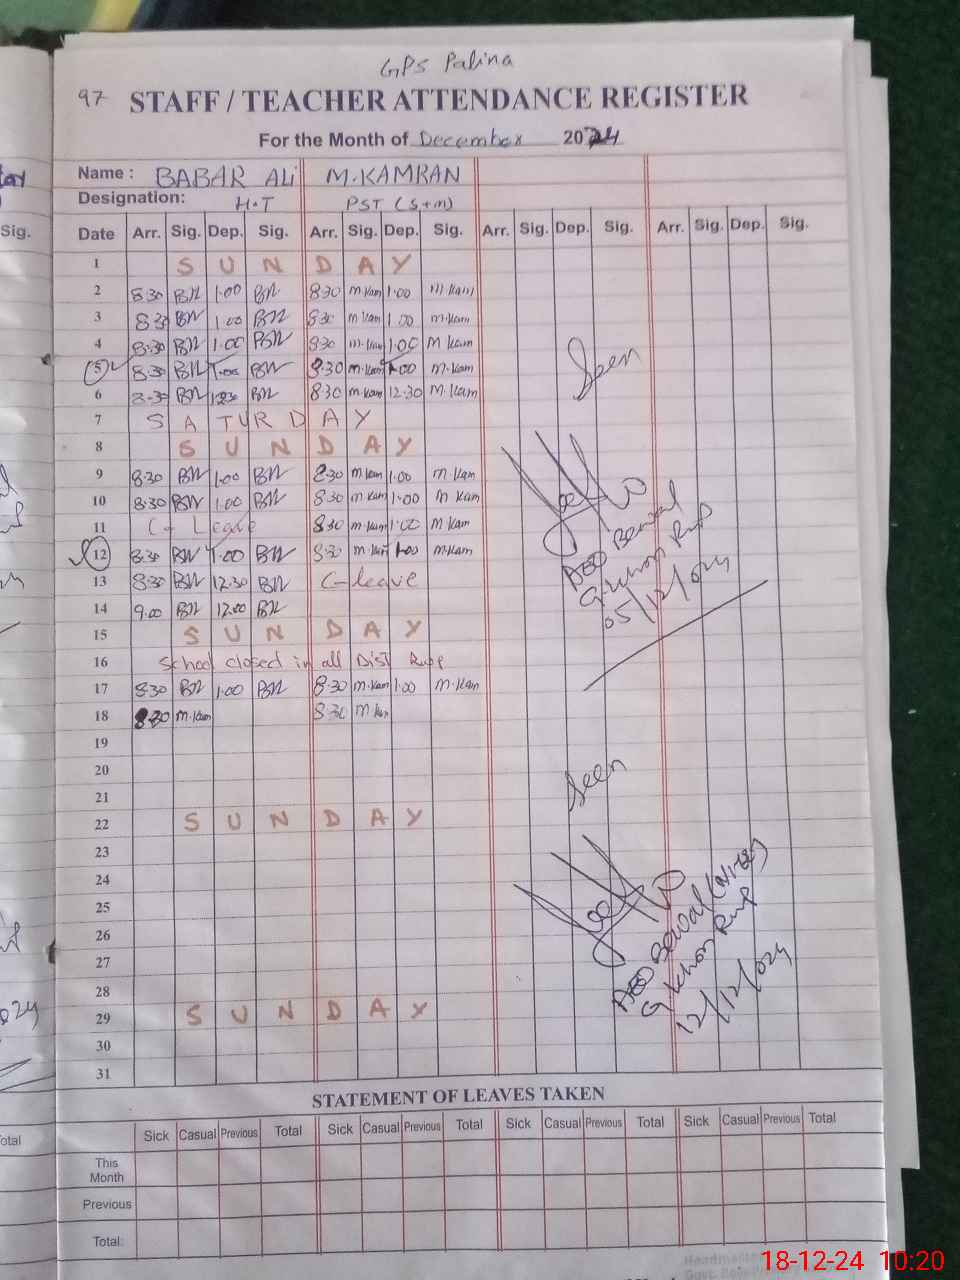 GPS Palina
97 STAFF / TEACHER ATTENDANCE REGISTER
For the Month of December 2024
Name : BABAR ALi M.KAMRAN
Designation: H.T PST (S+m)
Date Arr. Sig. Dep. Sig. Arr. Sig. Dep. Sig. Arr. Sig. Dep. Sig. Arr. Sig. Dep. Sig.
1 S U N D A Y
2 8:30 1.00 8:30 m.kam 1.00 m.kam
3 8:30 1.00 8:30 m.kam 1.00 m.kam
4 8:30 1.00 8:30 m.kam 1.00 M kam
5 8:30 1.00 8:30 m.kam 1.00 m.kam
6 8:30 12:30 8:30 m.kam 12:30 M.Kam
7 S A T U R D A Y
8 S U N D A Y
9 8:30 1.00 8:30 m.kam 1.00 m.kam
10 8:30 1.00 8:30 m.kam 1.00 m kam
11 C- Leave 8:30 m.kam 1:00 M kam
12 8:30 1.00 8:30 m.kam 1.00 m.kam
13 8:30 12:30 C-leave
14 9.00 12.00
15 S U N D A Y
16 School closed in all Dist
17 8:30 1:00 8:30 m.kam 1.00 m.kam
18 8:30 m.kam 8:30
19
20
21
22 S U N D A Y
23
24
25
26
27
28
29 S U N D A Y
30
31
Seen
AEO Bewal
G.khan
05/12/024
Seen
AEO Bewal
G khan
12/12/024
STATEMENT OF LEAVES TAKEN
Sick Casual Previous Total Sick Casual Previous Total Sick Casual Previous Total Sick Casual Previous Total
This Month
Previous
Total:
18-12-24 10:20